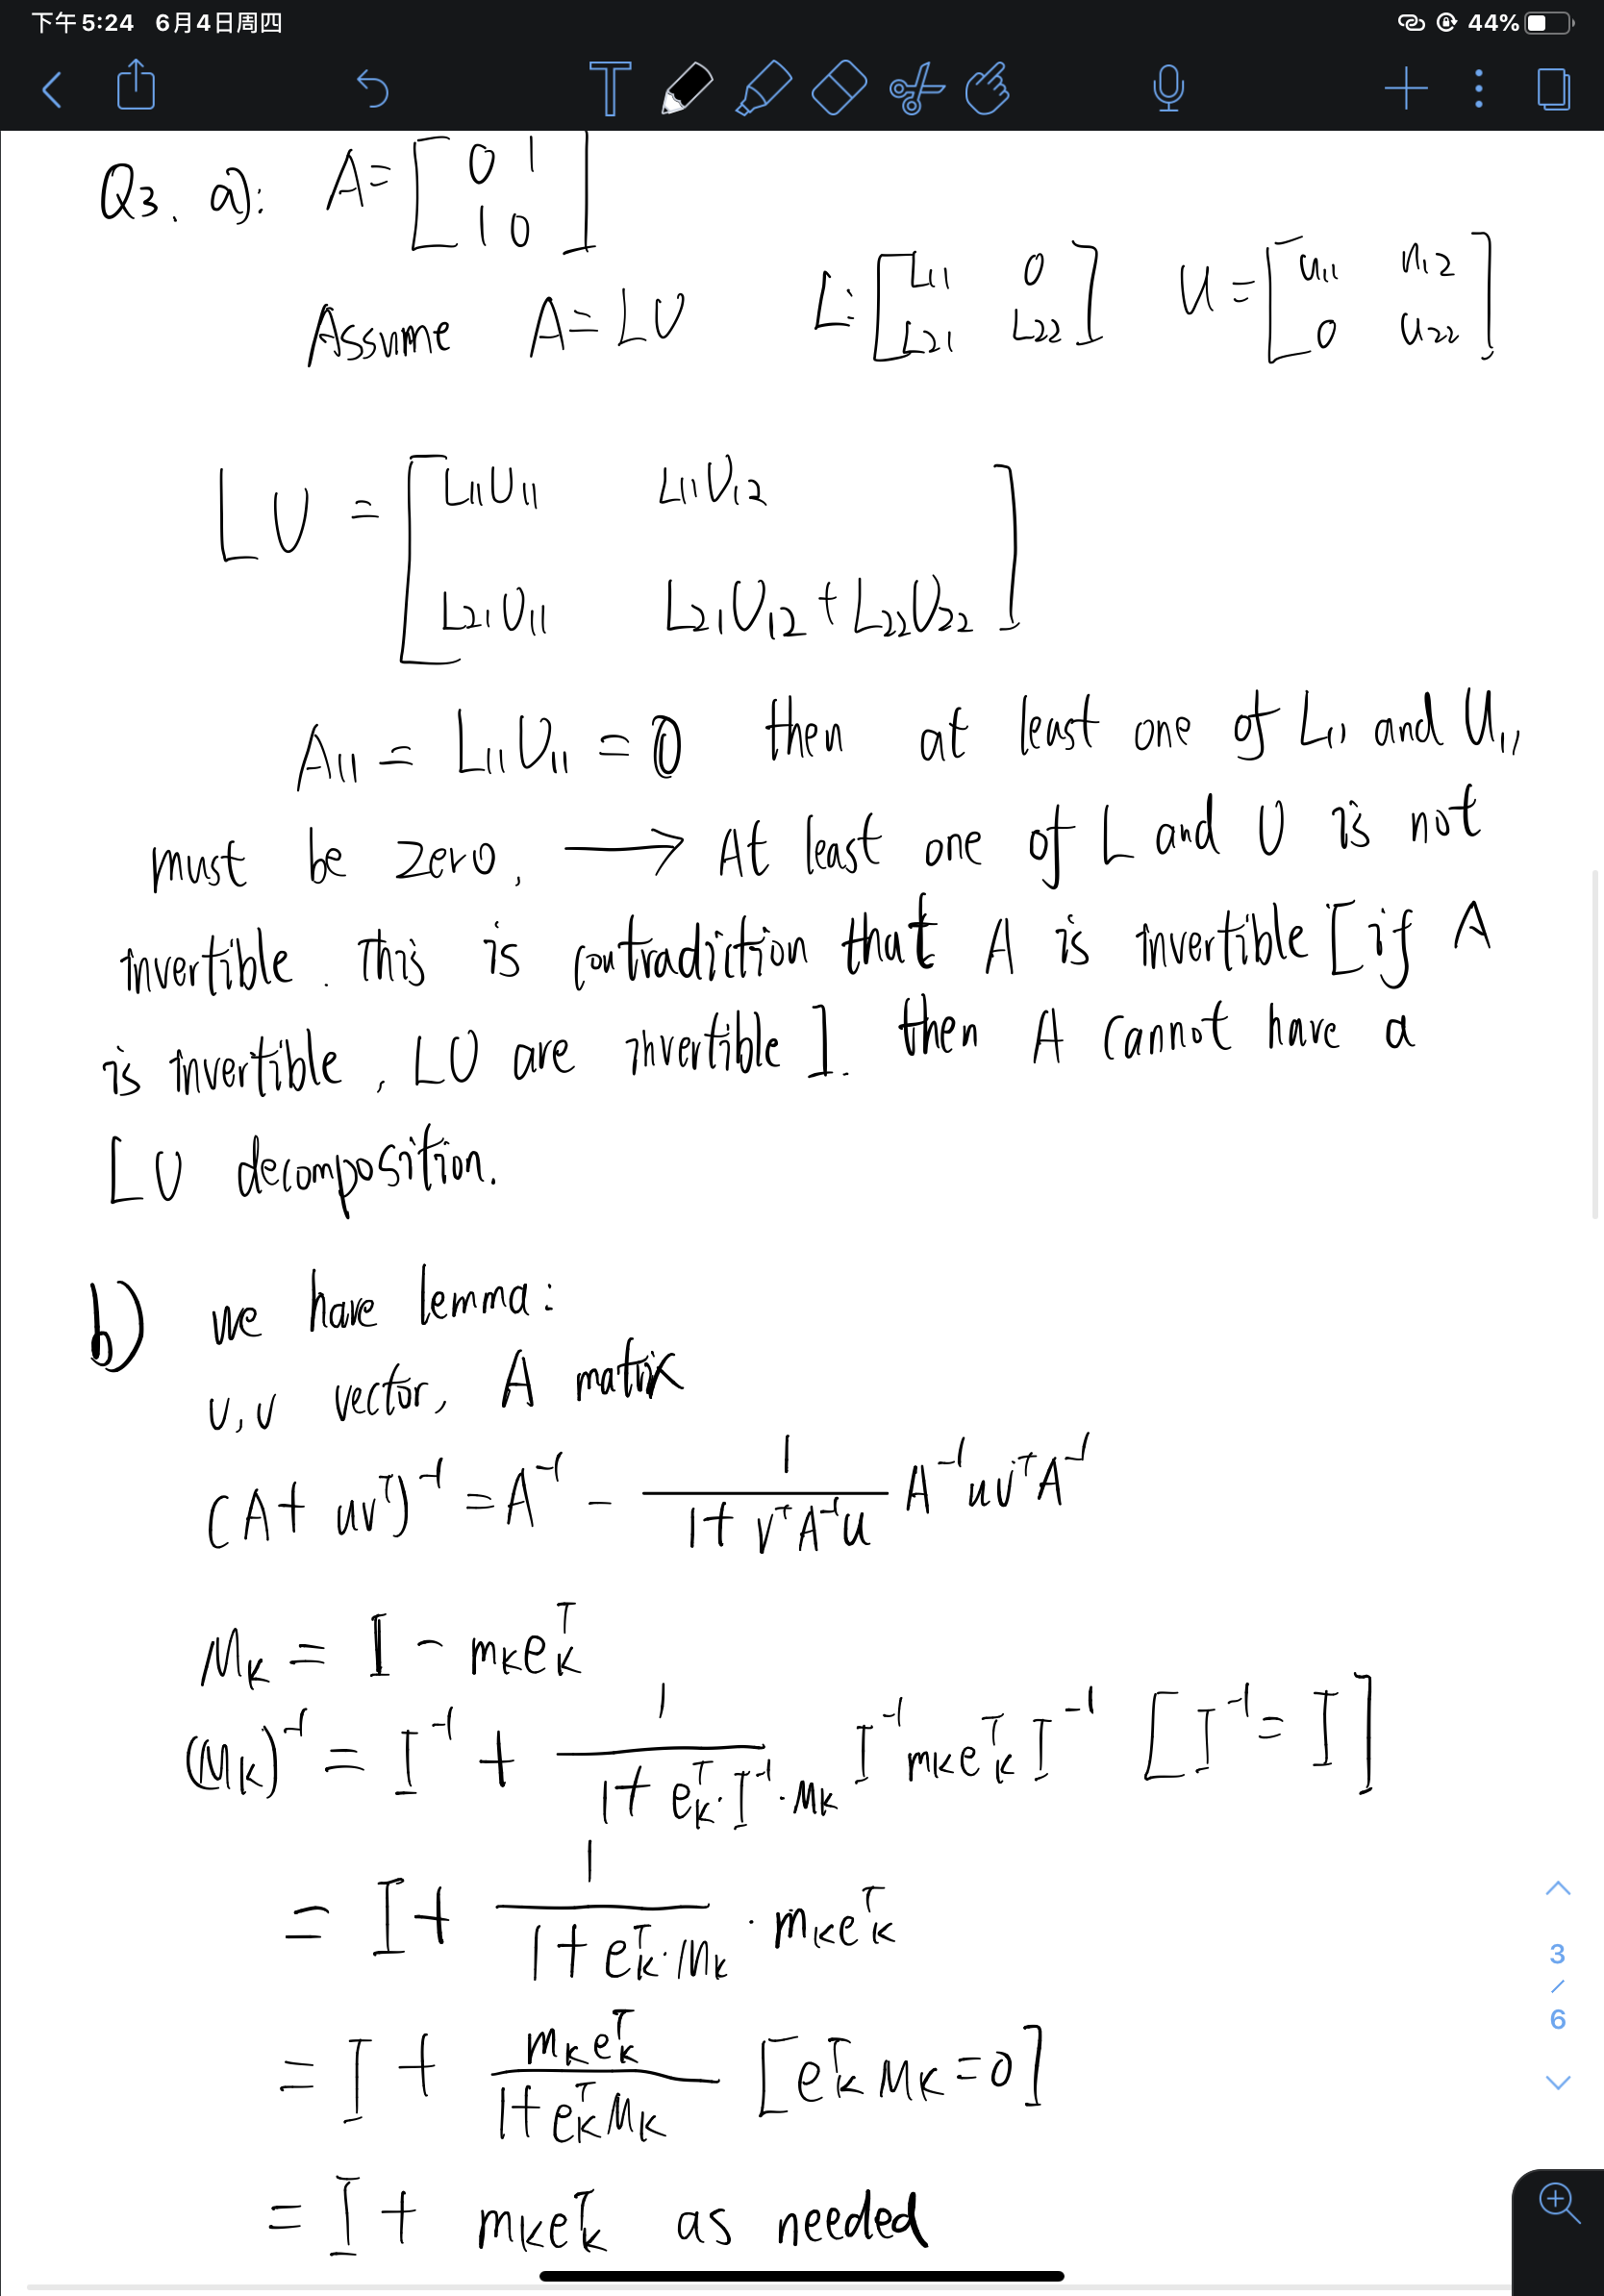 下午5:24 6月4日周四 44%
Q3. a): A = [ 0 1
1 0 ]
Assume A = LU L: [ L11 0 U = [ u11 u12
L21 L22 ] 0 u22 ]
LU = [ L11U11 L11U12
L21U11 L21U12 + L22U22 ]
A11 = L11U11 = 0 then at least one of L11 and U11
must be zero. → At least one of L and U is not
invertible. This is contradiction that A is invertible [if A
is invertible, LU are invertible]. then A cannot have a
LU decomposition.
b) we have lemma:
u,v vector, A matrix
(A + uvᵀ)⁻¹ = A⁻¹ − 1/(1 + vᵀA⁻¹u) A⁻¹uvᵀA⁻¹
Mₖ = I − mₖeₖᵀ
(Mₖ)⁻¹ = I⁻¹ + 1/(1 + eₖᵀ·I⁻¹·mₖ) I⁻¹mₖeₖᵀI⁻¹ [I⁻¹ = I]
= I + 1/(1 + eₖᵀ·mₖ) · mₖeₖᵀ
= I + mₖeₖᵀ/(1 + eₖᵀmₖ) [eₖᵀmₖ = 0]
= I + mₖeₖᵀ as needed
3
/
6